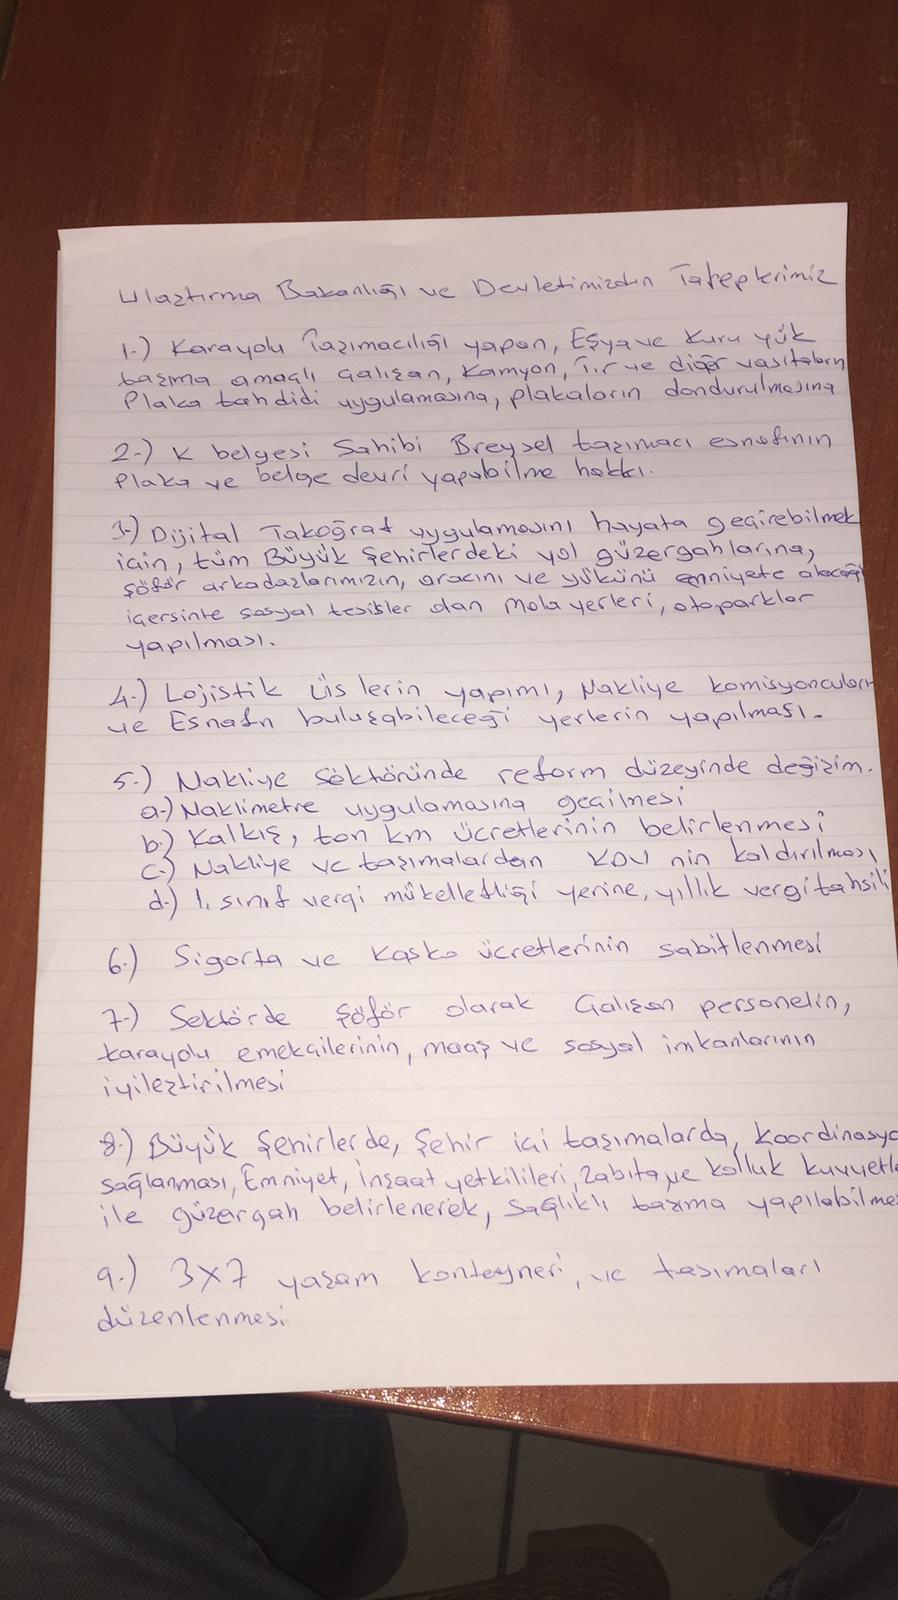 Ulaştırma Bakanlığı ve Devletimizden Taleplerimiz
1.) Karayolu Taşımacılığı yapan, Eşya ve Kuru yük
taşıma amaçlı çalışan, Kamyon, Tır ve diğer vasıtaların
Plaka tahdidi uygulamasına, plakaların dondurulmasına
2.) K belgesi Sahibi Breysel taşımacı esnafının
Plaka ve belge devri yapabilme hakkı.
3.) Dijital Takoğraf uygulamasını hayata geçirebilmek
için, tüm Büyük Şehirlerdeki yol güzergahlarına,
şöför arkadaşlarımızın, aracını ve yükünü emniyete alacağı
içersinte sosyal tesisler olan Mola yerleri, otoparklar
yapılması.
4.) Lojistik Üs lerin yapımı, Nakliye komisyoncuların
ve Esnafın buluşabileceği yerlerin yapılması.
5.) Nakliye Söktöründe reform düzeyinde değişim.
a.) Naklimetre uygulamasına geçilmesi
b.) Kalkış, ton km ücretlerinin belirlenmesi
c.) Nakliye ve taşımalardan KDV nin kaldırılması
d.) 1. sınıf vergi mükellefliği yerine, yıllık vergi tahsili
6.) Sigorta ve Kasko ücretlerinin sabitlenmesi
7.) Sektörde şöför olarak Çalışan personelin,
karayolu emekçilerinin, maaş ve sosyal imkanlarının
iyileştirilmesi
8.) Büyük Şehirlerde, Şehir içi taşımalarda, koordinasyo
sağlanması, Emniyet, İnşaat yetkilileri, Zabıta ve kolluk kuvvetle
ile güzergah belirlenerek, sağlıklı taşıma yapılabilmes
9.) 3x7 yaşam konteyneri, ve taşımaları
düzenlenmesi